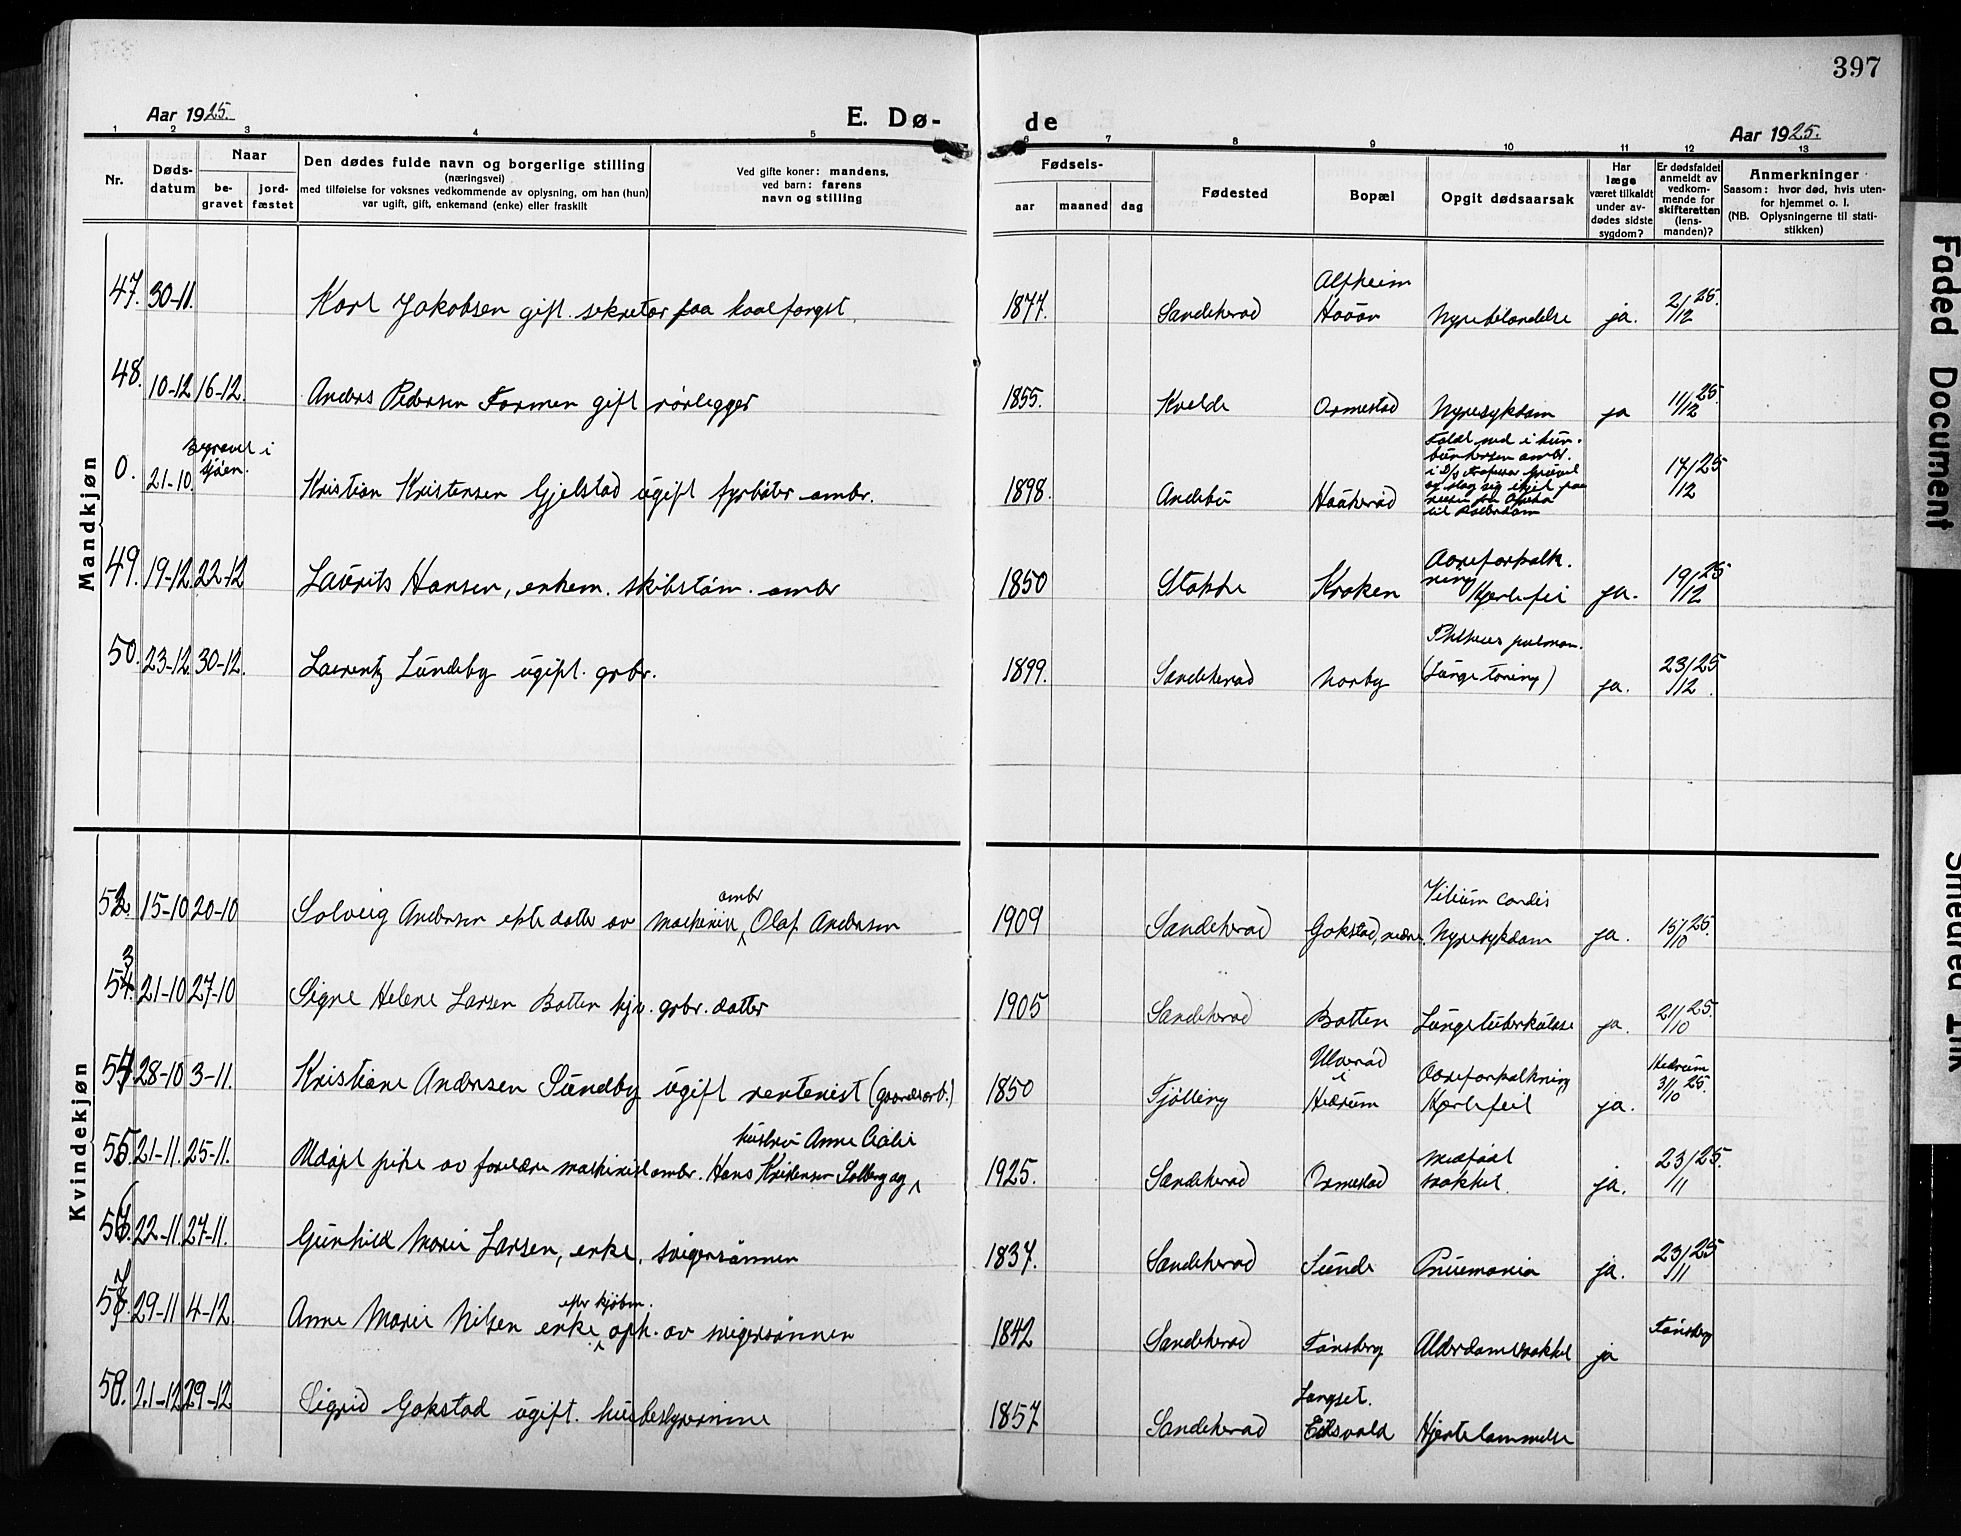 397
Aar 1925.
E. Dø-
de
Aar 1925.
1 2 3 4 5 6 7 8 9 10 11 12 13
Nr.
Døds-
datum
Naar
be-
gravet
jord-
fæstet
Den dødes fulde navn og borgerlige stilling
(næringsvei)
med tilføielse for voksnes vedkommende av oplysning, om han (hun)
var ugift, gift, enkemand (enke) eller fraskilt
Ved gifte koner: mandens,
ved barn: farens
navn og stilling
Fødsels-
aar maaned dag
Fødested
Bopæl
Opgit dødsaarsak
Har
læge
været tilkaldt
under av-
dødes sidste
sygdom?
Er dødsfaldet
anmeldt av
vedkom-
mende for
skifteretten
(lens-
manden)?
Anmerkninger
Saasom: hvor død, hvis uten-
for hjemmet o. l.
(NB. Oplysningerne til stati-
stikken)
Mandkjøn
47. 30-11. Karl Jakobsen gift. sekretær paa hvalfangst. 1877. Sandeherad Alfheim Haaan Nyrebetændelse ja. 2/12 25.
48. 10-12 16-12. Anders Pedersen Formen gift rørlegger 1855. Kvelde Ormestad Nyresykdom ja 11/12 25.
0. 21-10. Begravet i sjøen. Kristian Kristensen Gjelstad ugift fyrbøter ombr. 1898. Andebu Haakerød
Faldt ned i
i D/S Professor
og slog sig ihjel paa
reisen fra
til Rotterdam
17/12 25
49. 19-12. 22-12 Laurits Hansen, enkem. skibstøm. ombr 1850 Stokke Kroken Aareforkalkning Hjertefeil ja. 19/12 25
50. 23-12. 30-12. Laurentz Lundeby ugift. grbr. 1899. Sandeherad Norby Phthisis pulmon. (Lungetæring) ja. 23/12 25.
Kvindekjøn
52 15-10 20-10 Solveig Andersen egte datter av maskinist ombr Olaf Andersen 1909 Sandeherad Gokstad, nedre. Vitium cordis Nyresykdom ja. 15/10 25.
53. 21-10 27-10 Signe Helene Larsen Botten hjv. grbr. datter 1905 Sandeherad Botten Lungetuberkulose ja. 21/10 25.
54 28-10 3-11. Kristiane Andersen Sundby ugift rentenist (gaardarb.) 1850 Tjølling i Hedrum Aareforkalkning Hjertefeil ja. Hedrum 3/10 25.
55. 21-11. 25-11. Udøpt pike av forældre maskinist ombr. Hans Kristensen Solberg og hustru Anne Cecilie 1925. Sandeherad Ormestad Medfødt svakhet. ja. 23/11 25.
56. 22-11. 27-11. Gunhild Marie Larsen, enke, svigersønnen 1837. Sandeherad Sunde Pneumonia ja. 23/11 25
57. 29-11 4-12. Anne Marie Nilsen enke efter kjøbm. oph. av svigersønnen 1842 Sandeherad Tønsberg Alderdomssvakhet ja Tønsberg
58. 21-12 29-12 Sigrid Gokstad ugift. husbestyrerinne 1857 Sandeherad Langset. Eidsvold Hjertelammelse
Faded Document
Smeared Ink